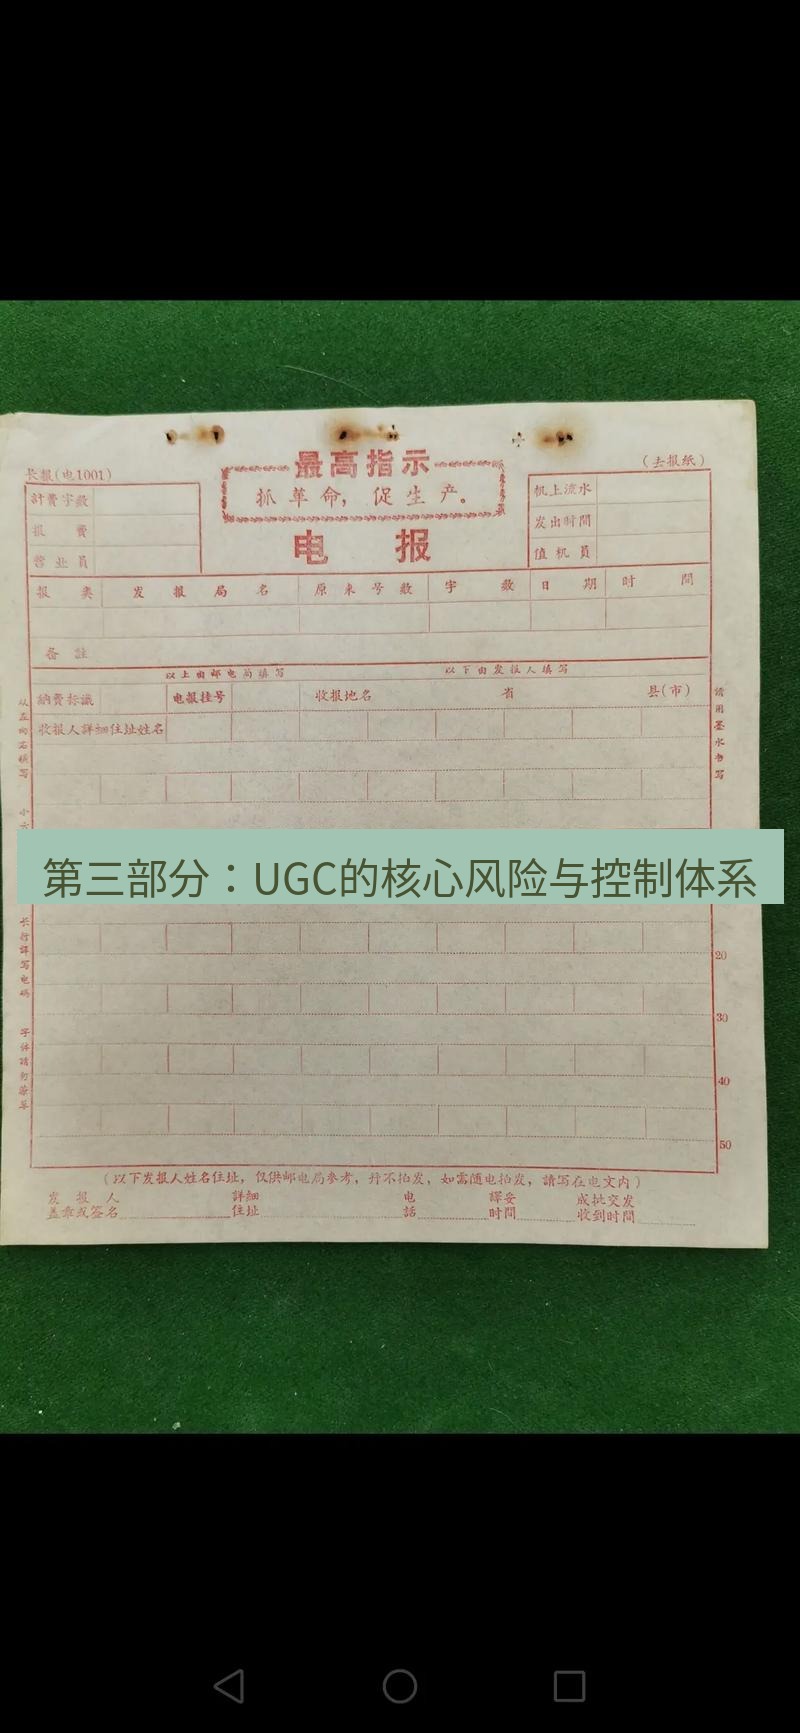 最高指示
抓革命，促生产。
长报(电1001)
(去报纸)
計費字数
报費
营业员
电报
机上流水
发出时間
值机員
报类 发报局名 原来号数 字数 日期 时間
备註
以上由邮电局填写 以下由发报人填写
納費标識 电报挂号 收报地名 省 县(市)
收报人詳細住址姓名
从左向右填写
請用墨水书写
第三部分：UGC的核心风险与控制体系
长行譯写电碼
字体請勿潦草
20
30
40
50
(以下发报人姓名住址，仅供邮电局参考，并不拍发，如需随电拍发，請写在电文内)
发报人 詳細 电 譯妥 成批交发
盖章或签名 住址 話 时間 收到时間